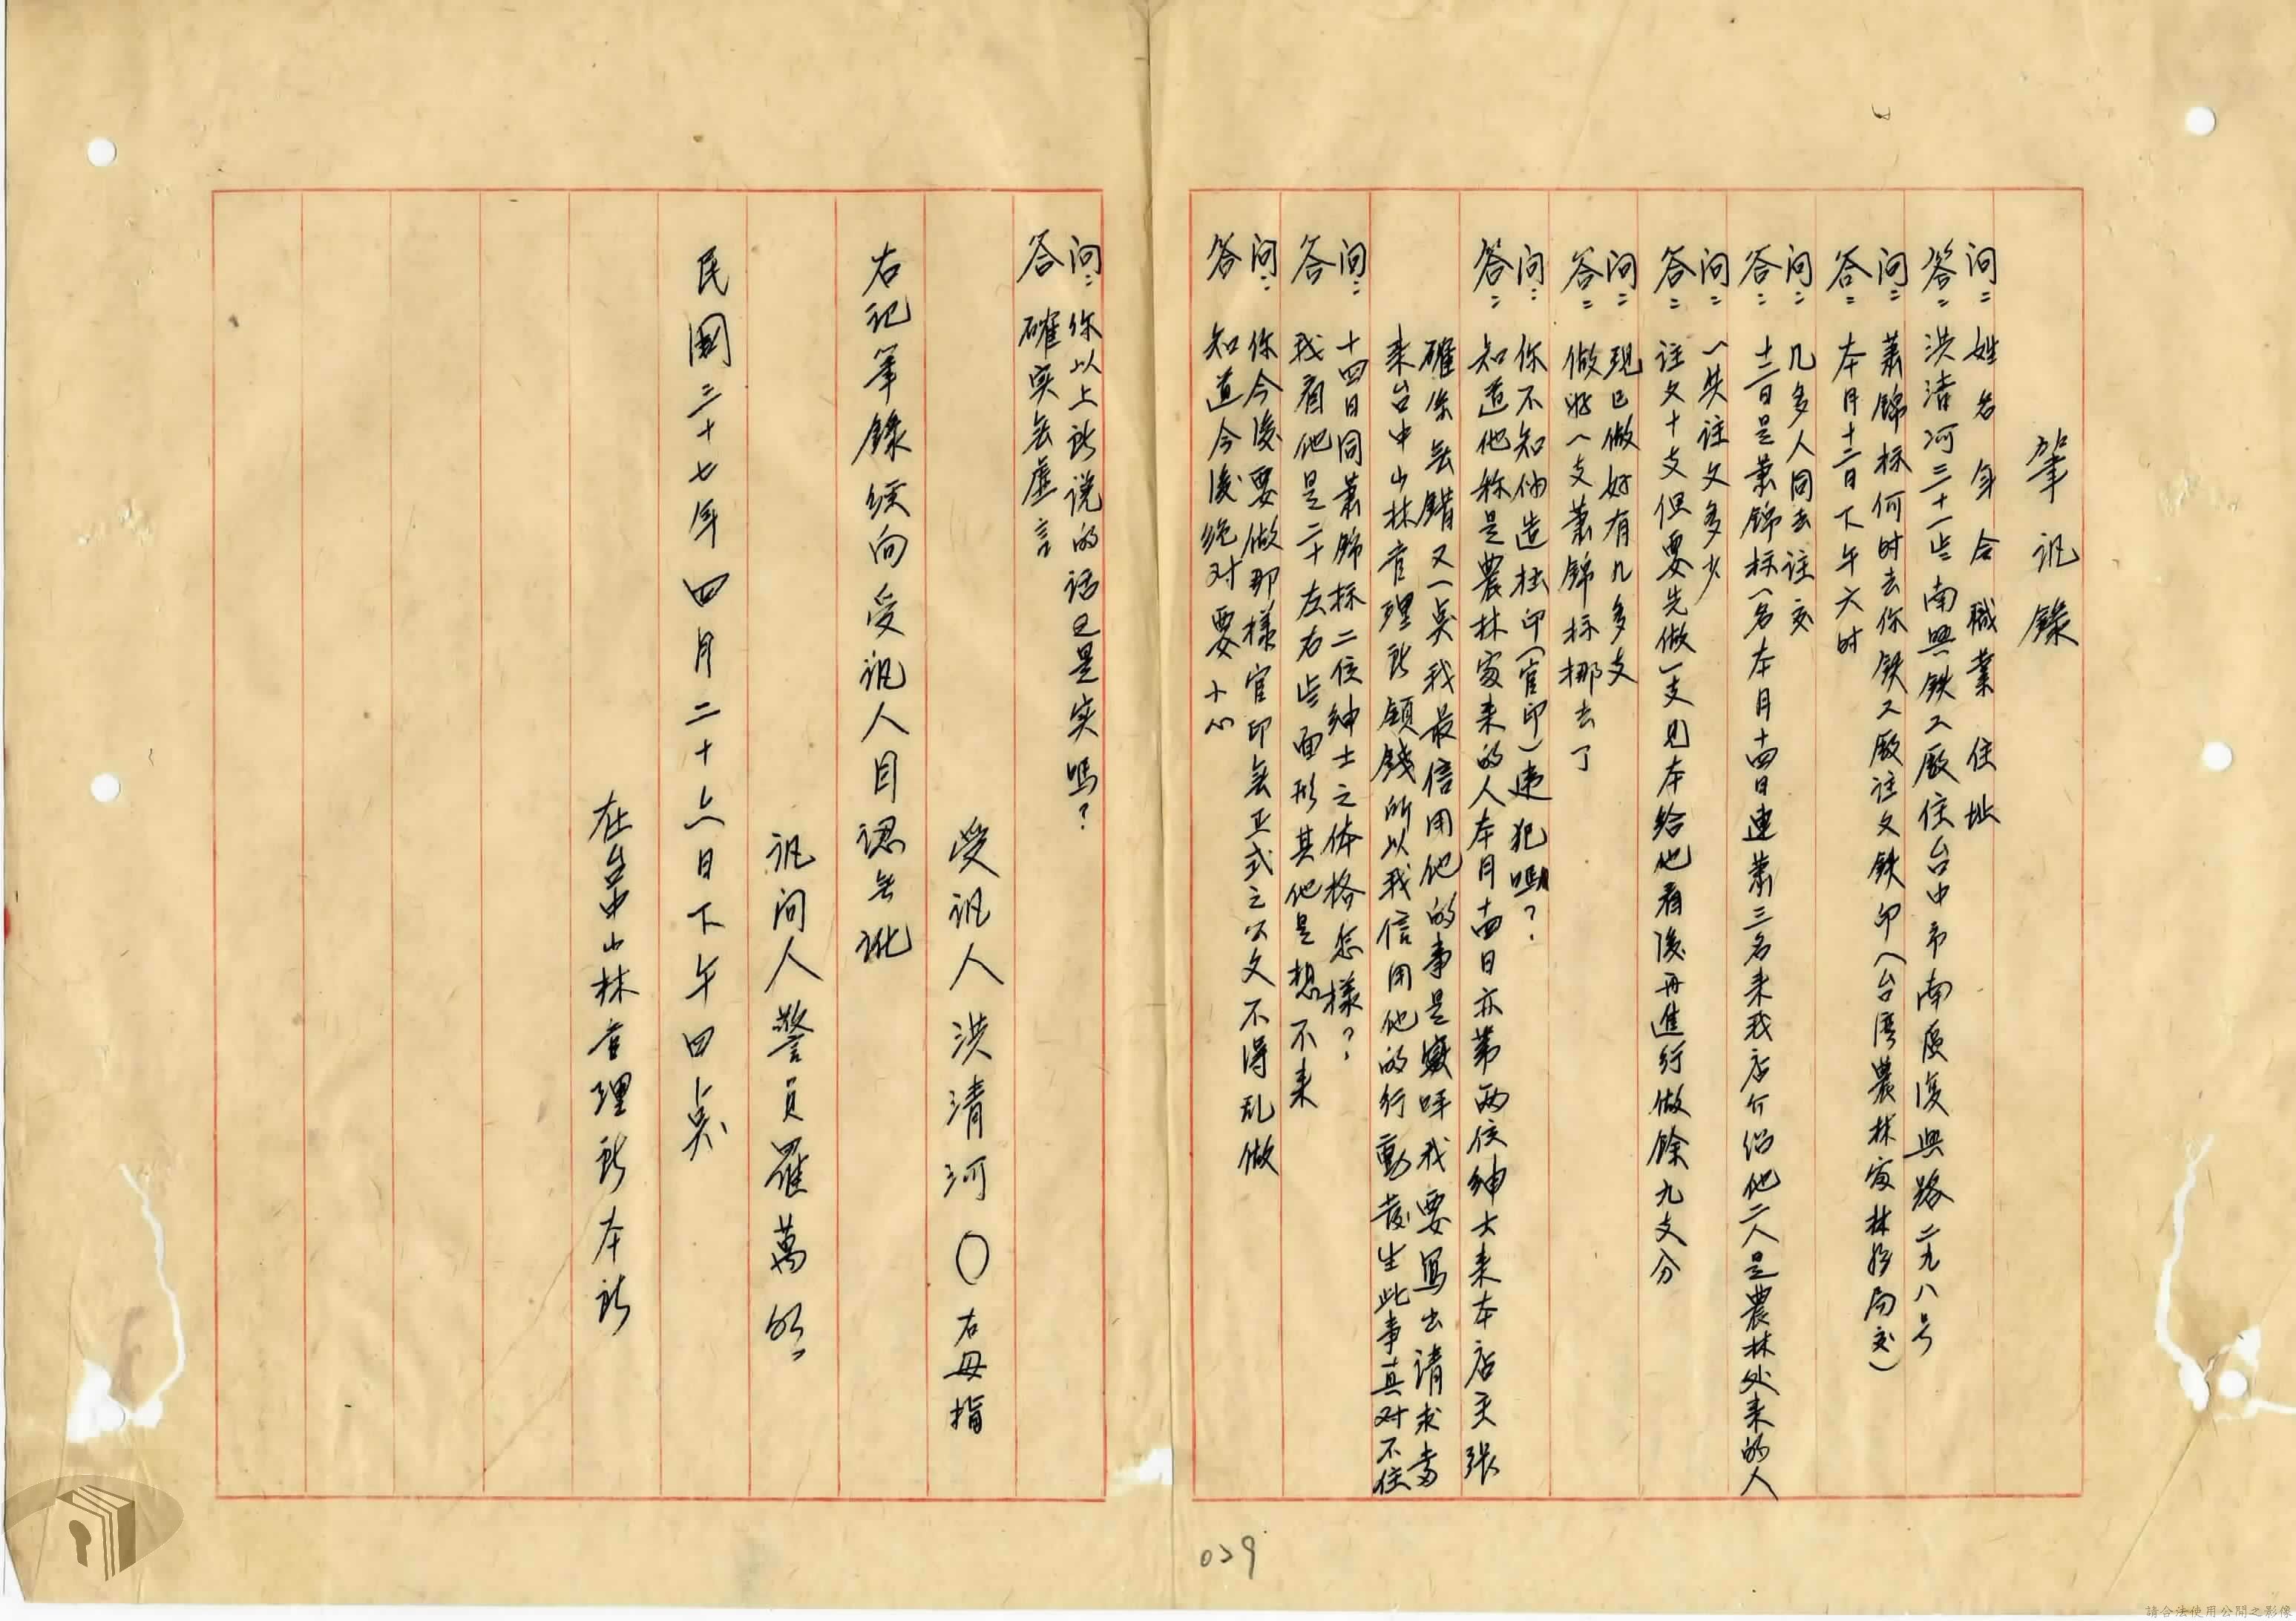 筆訊錄
问：姓名年令職業住址
答：洪清河三十一些南興鉄工廠住台中市南區復興路二九八号
问：蕭錦标何时去你鉄工廠註文鉄印（台湾農林處林務局文）
答：本月十三日下午六时
问：几多人同去註文
答：十三日是蕭錦标一名本月十四日連蕭三名来我店介绍他二人是農林处来的人
问：一共註文多少
答：註文十支但要先做一支見本給他看後再進行做餘九支分
问：現已做好有几多支
答：做好一支蕭錦标挪去了
问：你不知伪造杜印（官印）違犯嗎？
答：知道他称是農林處来的人本月十四日亦第两位紳士来本店主張
確係无錯又一奌我最信用他的事是 呼我要寫出請求書
来台中山林管理所領錢所以我信用他的行動發生此事真对不住
问：十四日同蕭錦标二位紳士之体格怎樣？
答 我看他是二十左右些面形其他是想不来
问：你今後要做那樣官印無正式之公文不得乱做
答 知道今後絶对要小心
问：你以上所説的话是实嗎？
答 確实无虚言
受訊人洪清河〇右母指
右記筆錄经向受訊人目認無訛
訊问人警員羅萬
民國三十七年四月二十六日下午四点
在台中山林管理所本所
029
請合法使用公開之影像